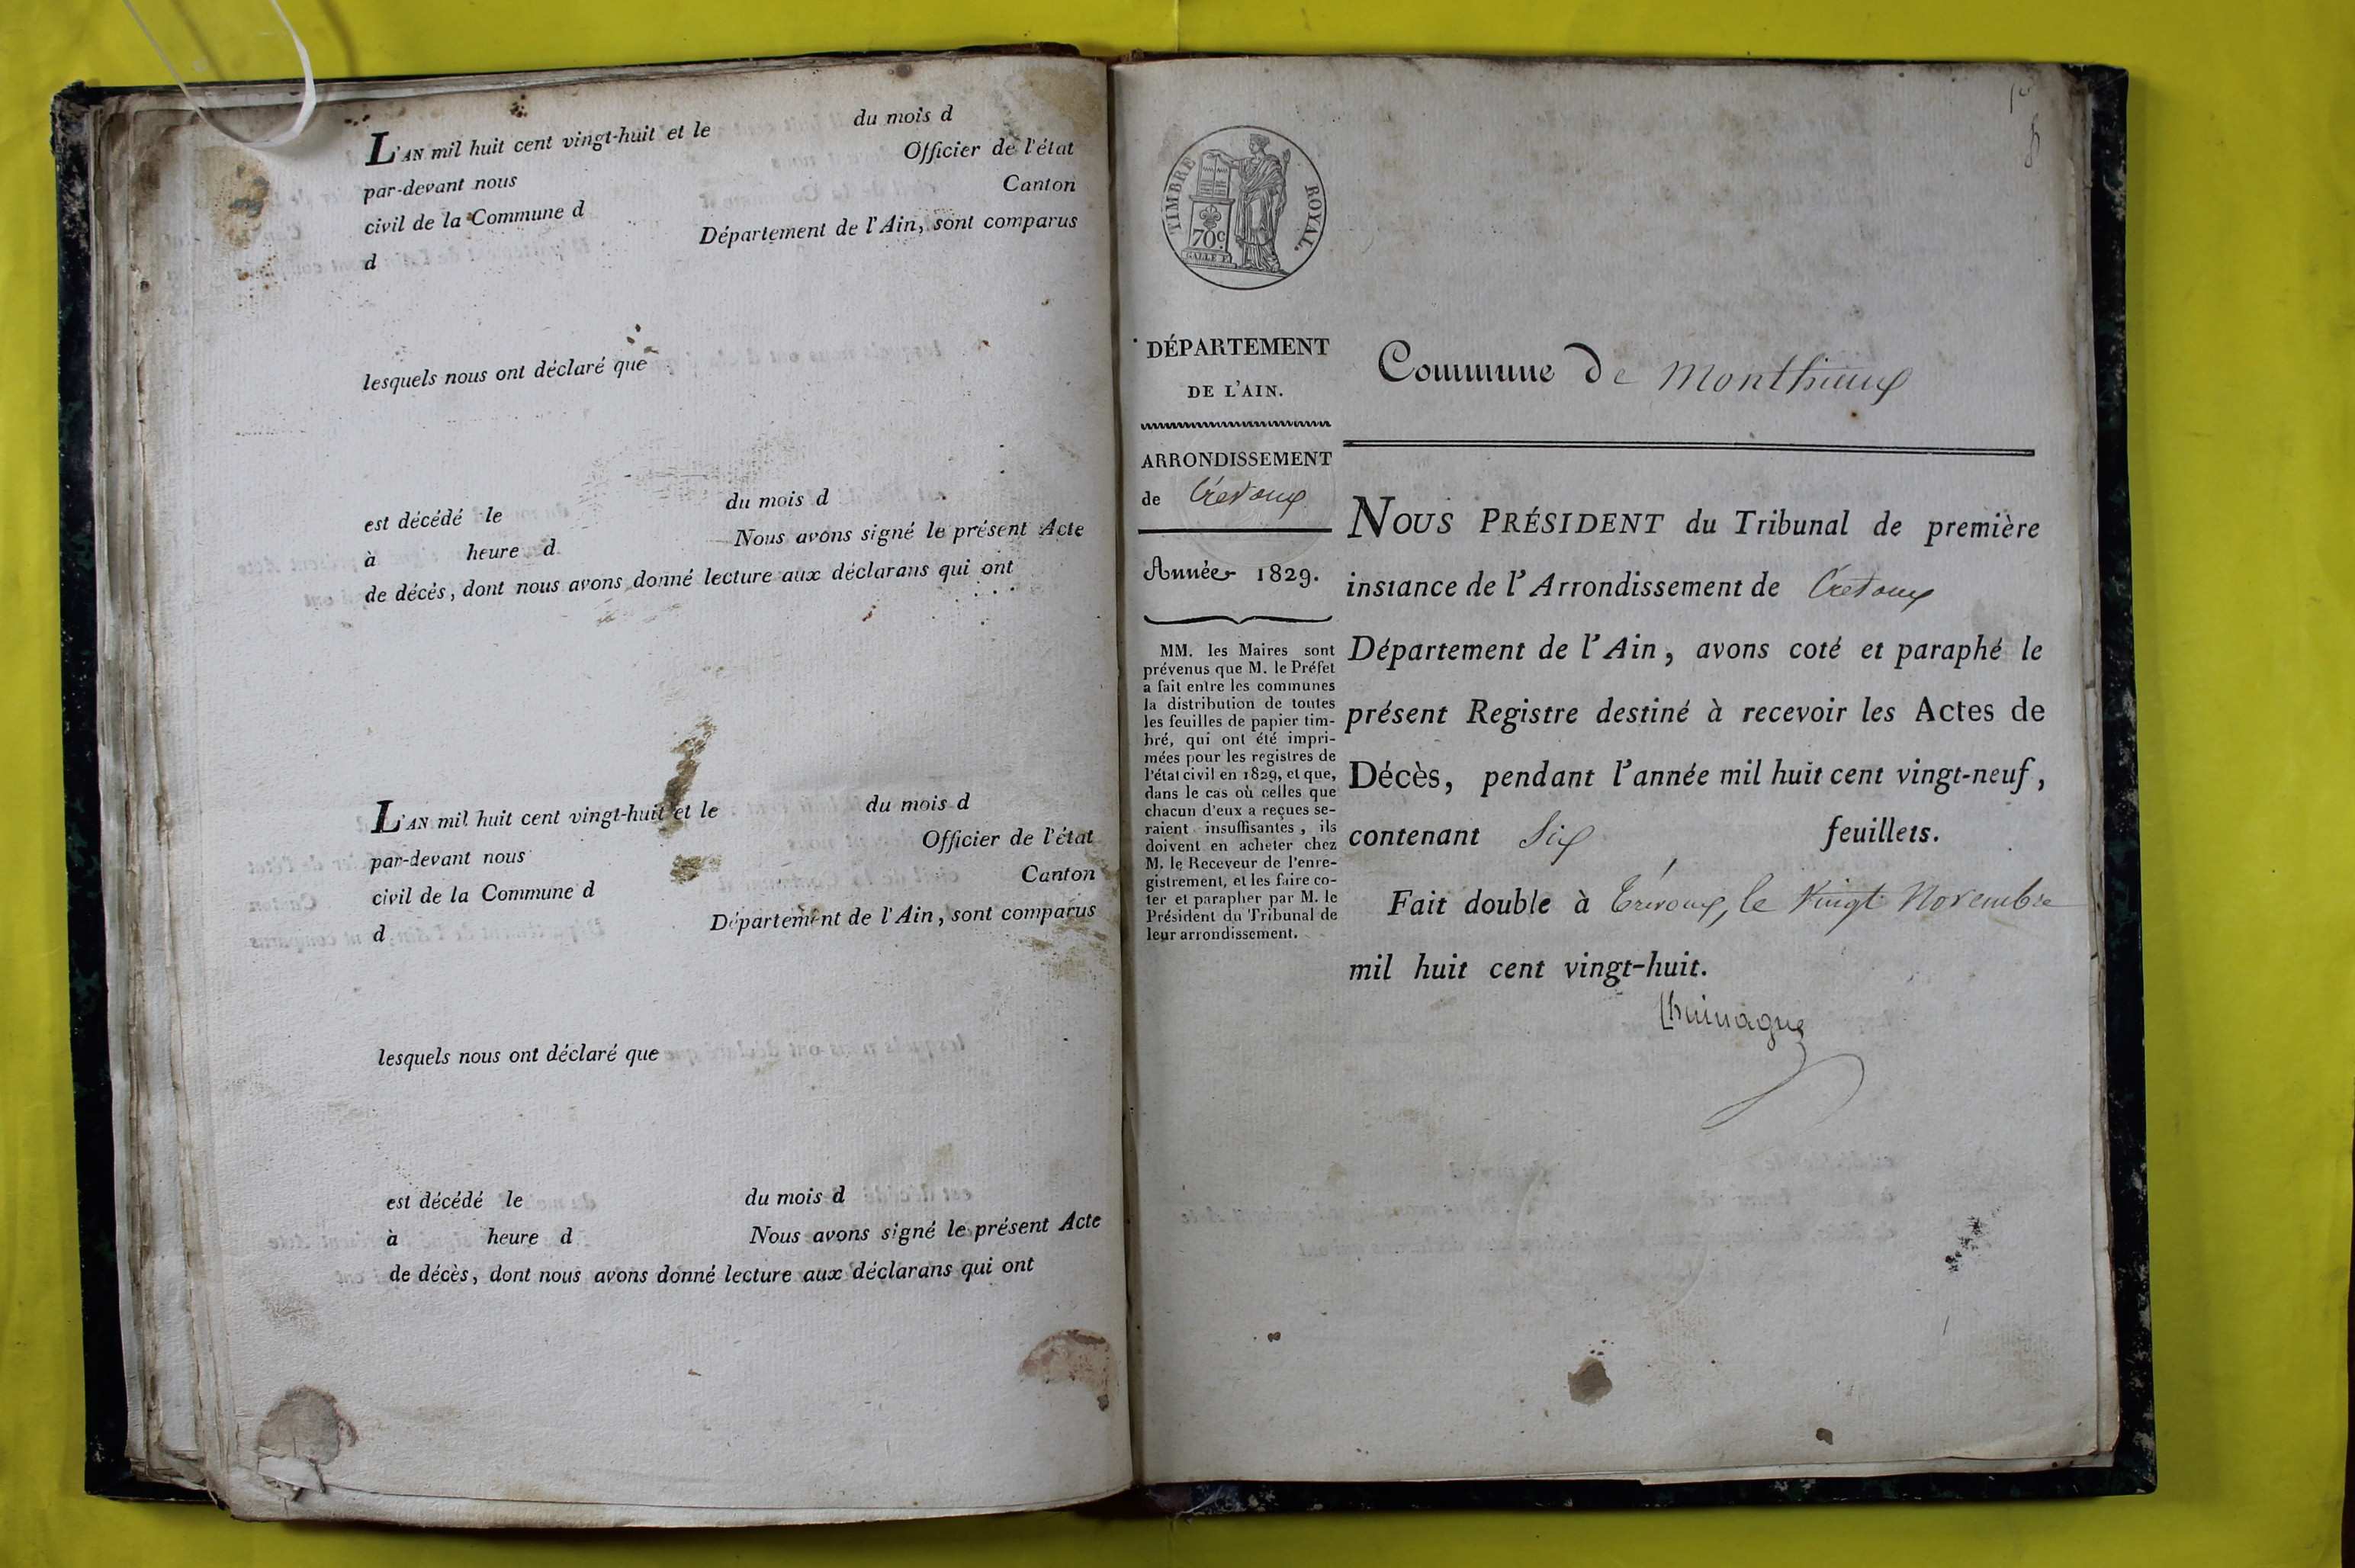 L'AN mil huit cent vingt-huit et le du mois d
par-devant nous Officier de l'état
civil de la Commune d Canton
d Département de l'Ain, sont comparus
lesquels nous ont déclaré que
est décédé le du mois d
à heure d Nous avons signé le présent Acte
de décès, dont nous avons donné lecture aux déclarans qui ont
L'AN mil huit cent vingt-huit et le du mois d
par-devant nous Officier de l'état
civil de la Commune d Canton
d Département de l'Ain, sont comparus
lesquels nous ont déclaré que
est décédé le du mois d
à heure d Nous avons signé le présent Acte
de décès, dont nous avons donné lecture aux déclarans qui ont
TIMBRE ROYAL.
70c.
GALLE F.
DÉPARTEMENT
DE L'AIN.
ARRONDISSEMENT
de Trévoux
Année 1829.
MM. les Maires sont
prévenus que M. le Préfet
a fait entre les communes
la distribution de toutes
les feuilles de papier tim-
bré, qui ont été impri-
mées pour les registres de
l'état civil en 1829, et que,
dans le cas où celles que
chacun d'eux a reçues se-
raient insuffisantes, ils
doivent en acheter chez
M. le Receveur de l'enre-
gistrement, et les faire co-
ter et parapher par M. le
Président du Tribunal de
leur arrondissement.
Commune de Monthieux
NOUS PRÉSIDENT du Tribunal de première
instance de l'Arrondissement de Trévoux
Département de l'Ain, avons coté et paraphé le
présent Registre destiné à recevoir les Actes de
Décès, pendant l'année mil huit cent vingt-neuf,
contenant Six feuillets.
Fait double à Trévoux, le Vingt Novembre
mil huit cent vingt-huit.